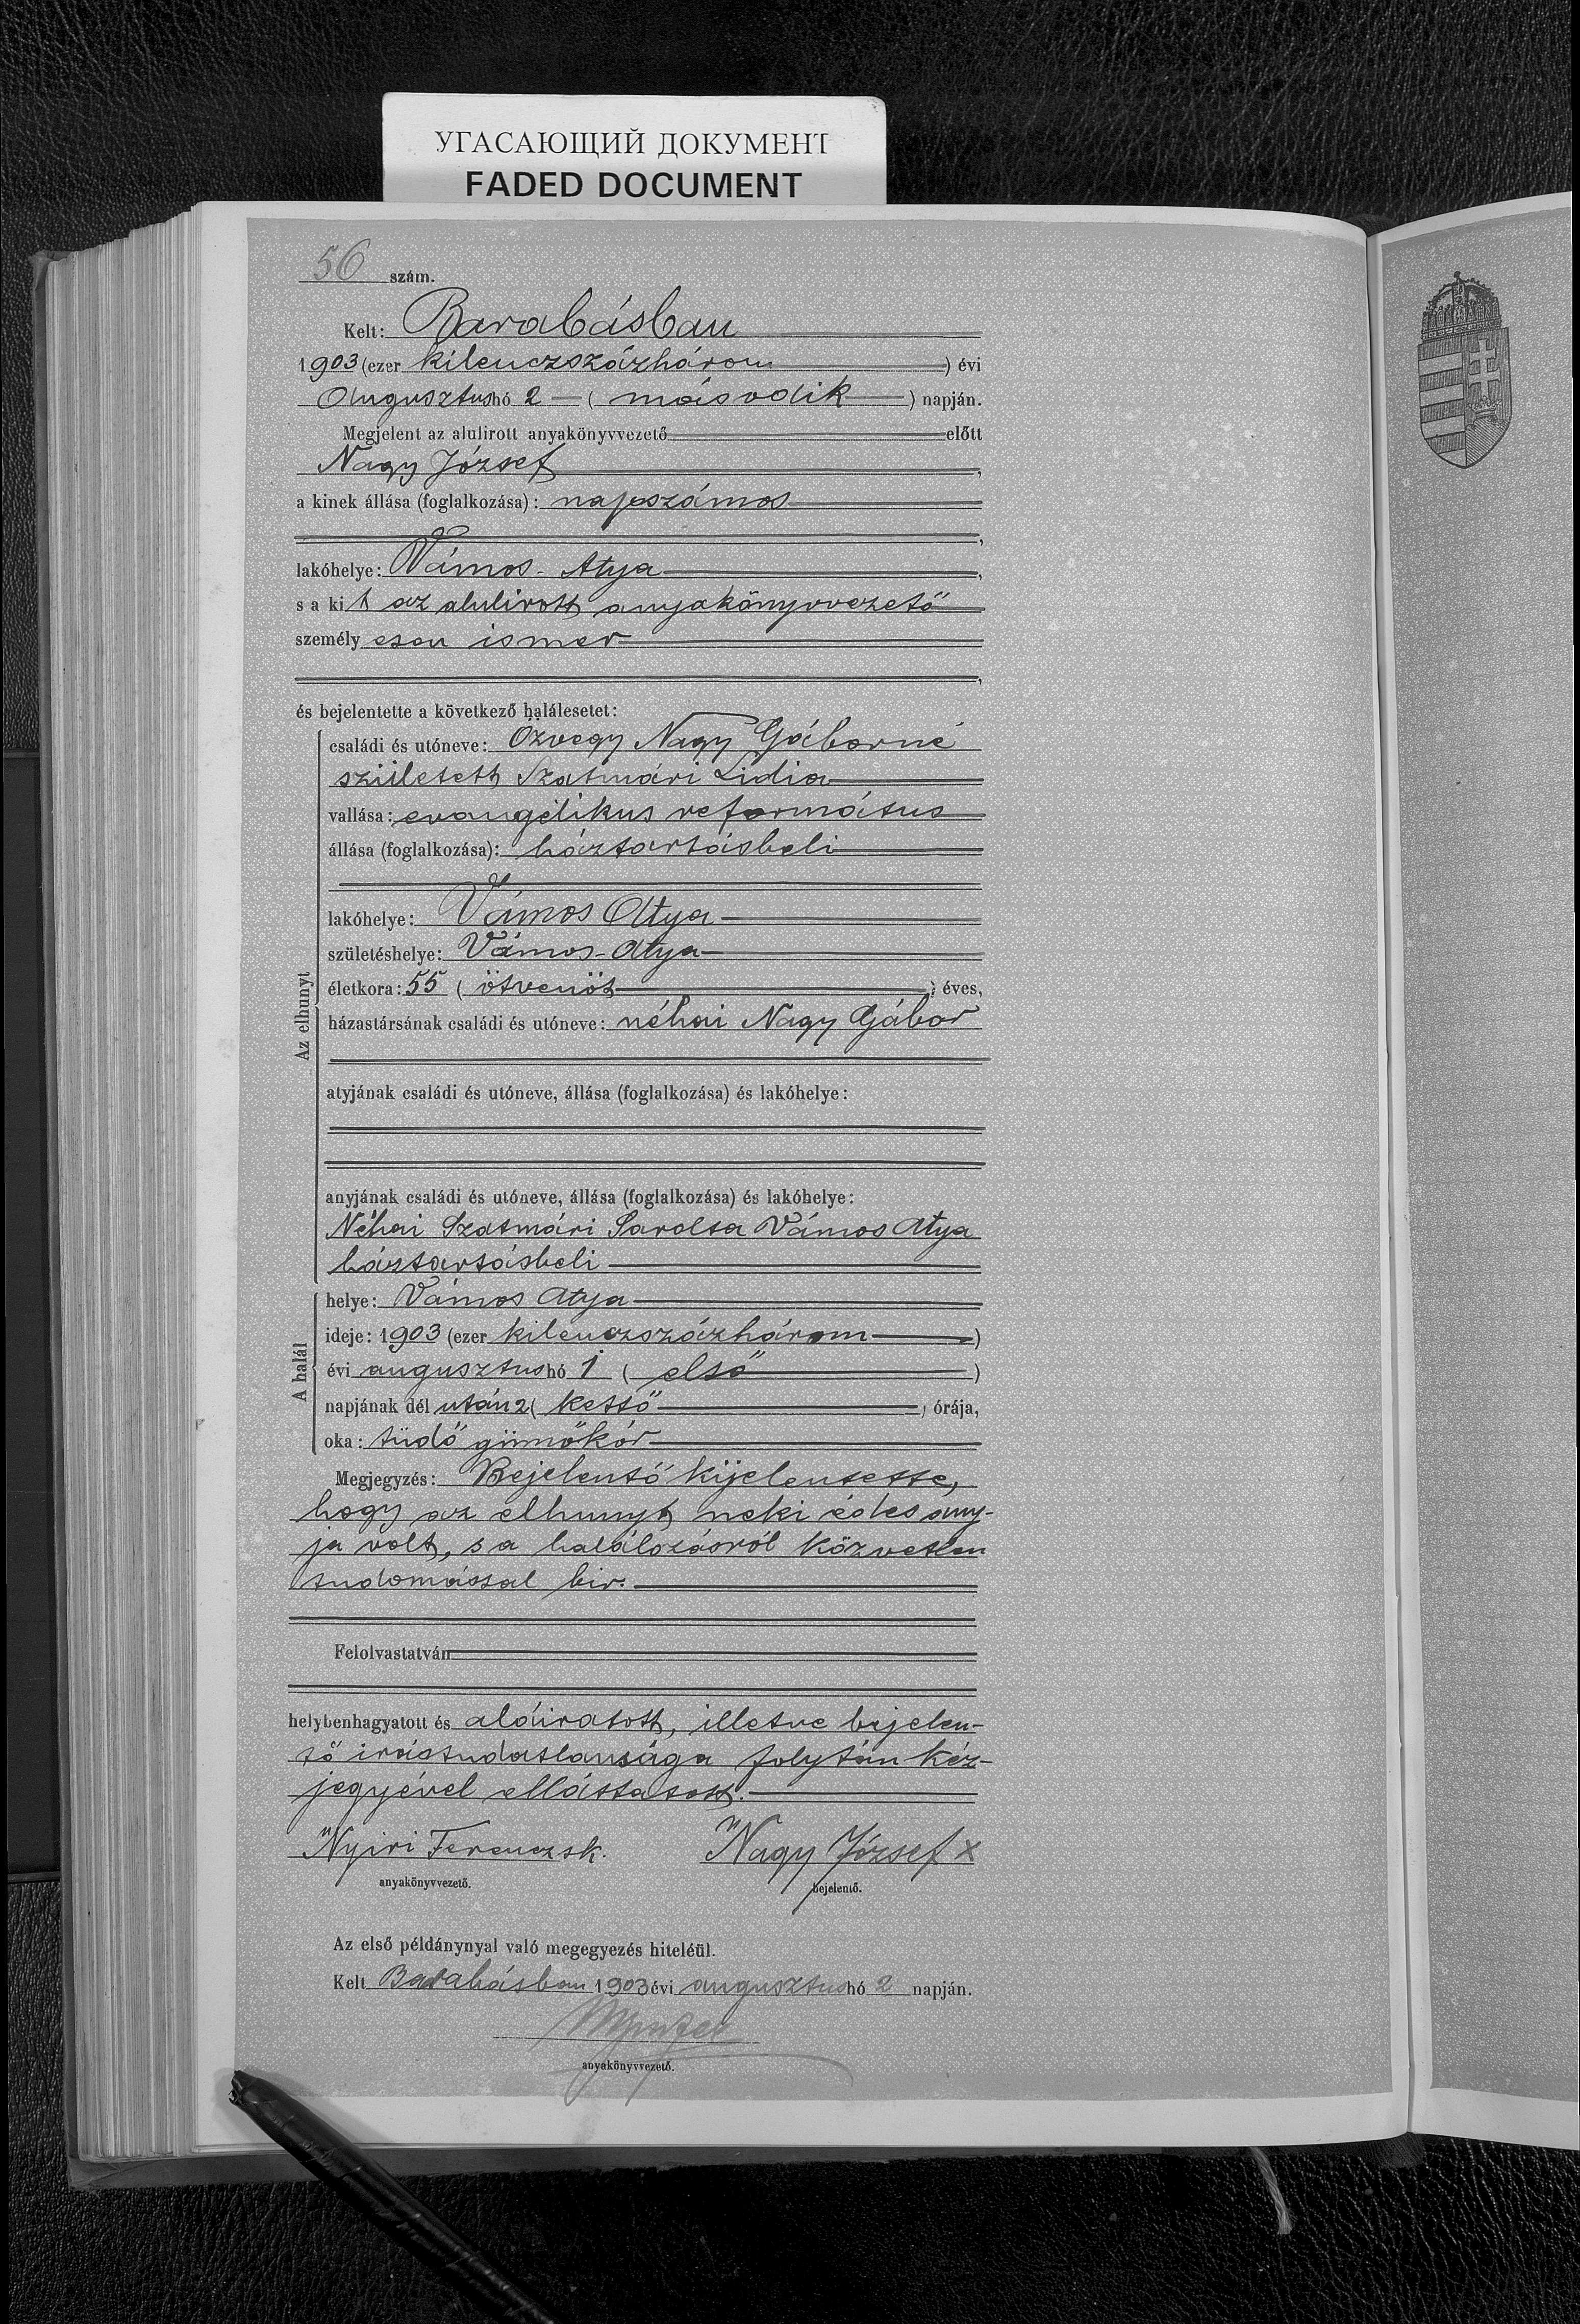 УГАСАЮЩИЙ ДОКУМЕНТ
FADED DOCUMENT
56 szám.
Kelt: Barabásban
1903 (ezer kilenczszázhárom) évi
Augusztus hó 2 (második) napján.
Megjelent az alulirott anyakönyvvezető előtt
Nagy József,
a kinek állása (foglalkozása): napszámos
,
lakóhelye: Vámos-Atya,
s a kit az alulirott anyakönyvvezető
személyesen ismer
,
és bejelentette a következő halálesetet:
Az elhunyt
családi és utóneve: Özvegy Nagy Gáborné
született Szatmári Lidia
vallása: evangélikus református
állása (foglalkozása): háztartásbeli
lakóhelye: Vámos Atya
születéshelye: Vámos-Atya
életkora: 55 (ötvenöt) éves,
házastársának családi és utóneve: néhai Nagy Gábor
atyjának családi és utóneve, állása (foglalkozása) és lakóhelye:
anyjának családi és utóneve, állása (foglalkozása) és lakóhelye:
Néhai Szatmári Sarolta Vámos Atya
háztartásbeli
A halál
helye: Vámos Atya
ideje: 1903 (ezer kilenczszázhárom)
évi augusztus hó 1 (első)
napjának dél után 2 (kettő) órája,
oka: tüdő gümőkór
Megjegyzés: Bejelentő kijelentette,
hogy az elhunyt neki édes any-
ja volt, s a halálozásról közvetlen
tudomással bir.
Felolvastatván
helybenhagyatott és aláiratott, illetve bejelen-
tő irástudatlansága folytán kéz-
jegyével elláttatott.
Nyiri Ferencz sk. Nagy József x
anyakönyvvezető. bejelentő.
Az első példánynyal való megegyezés hiteléül.
Kelt Barabásban 1903 évi augusztus hó 2 napján.
anyakönyvvezető.